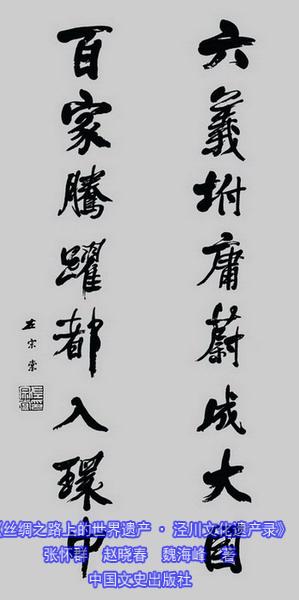 六義坿庸蔚成大國
百家騰躍都入環中
左宗棠
《丝绸之路上的世界遗产·泾川文化遗产录》
张怀群 赵晓春 魏海峰 著
中国文史出版社